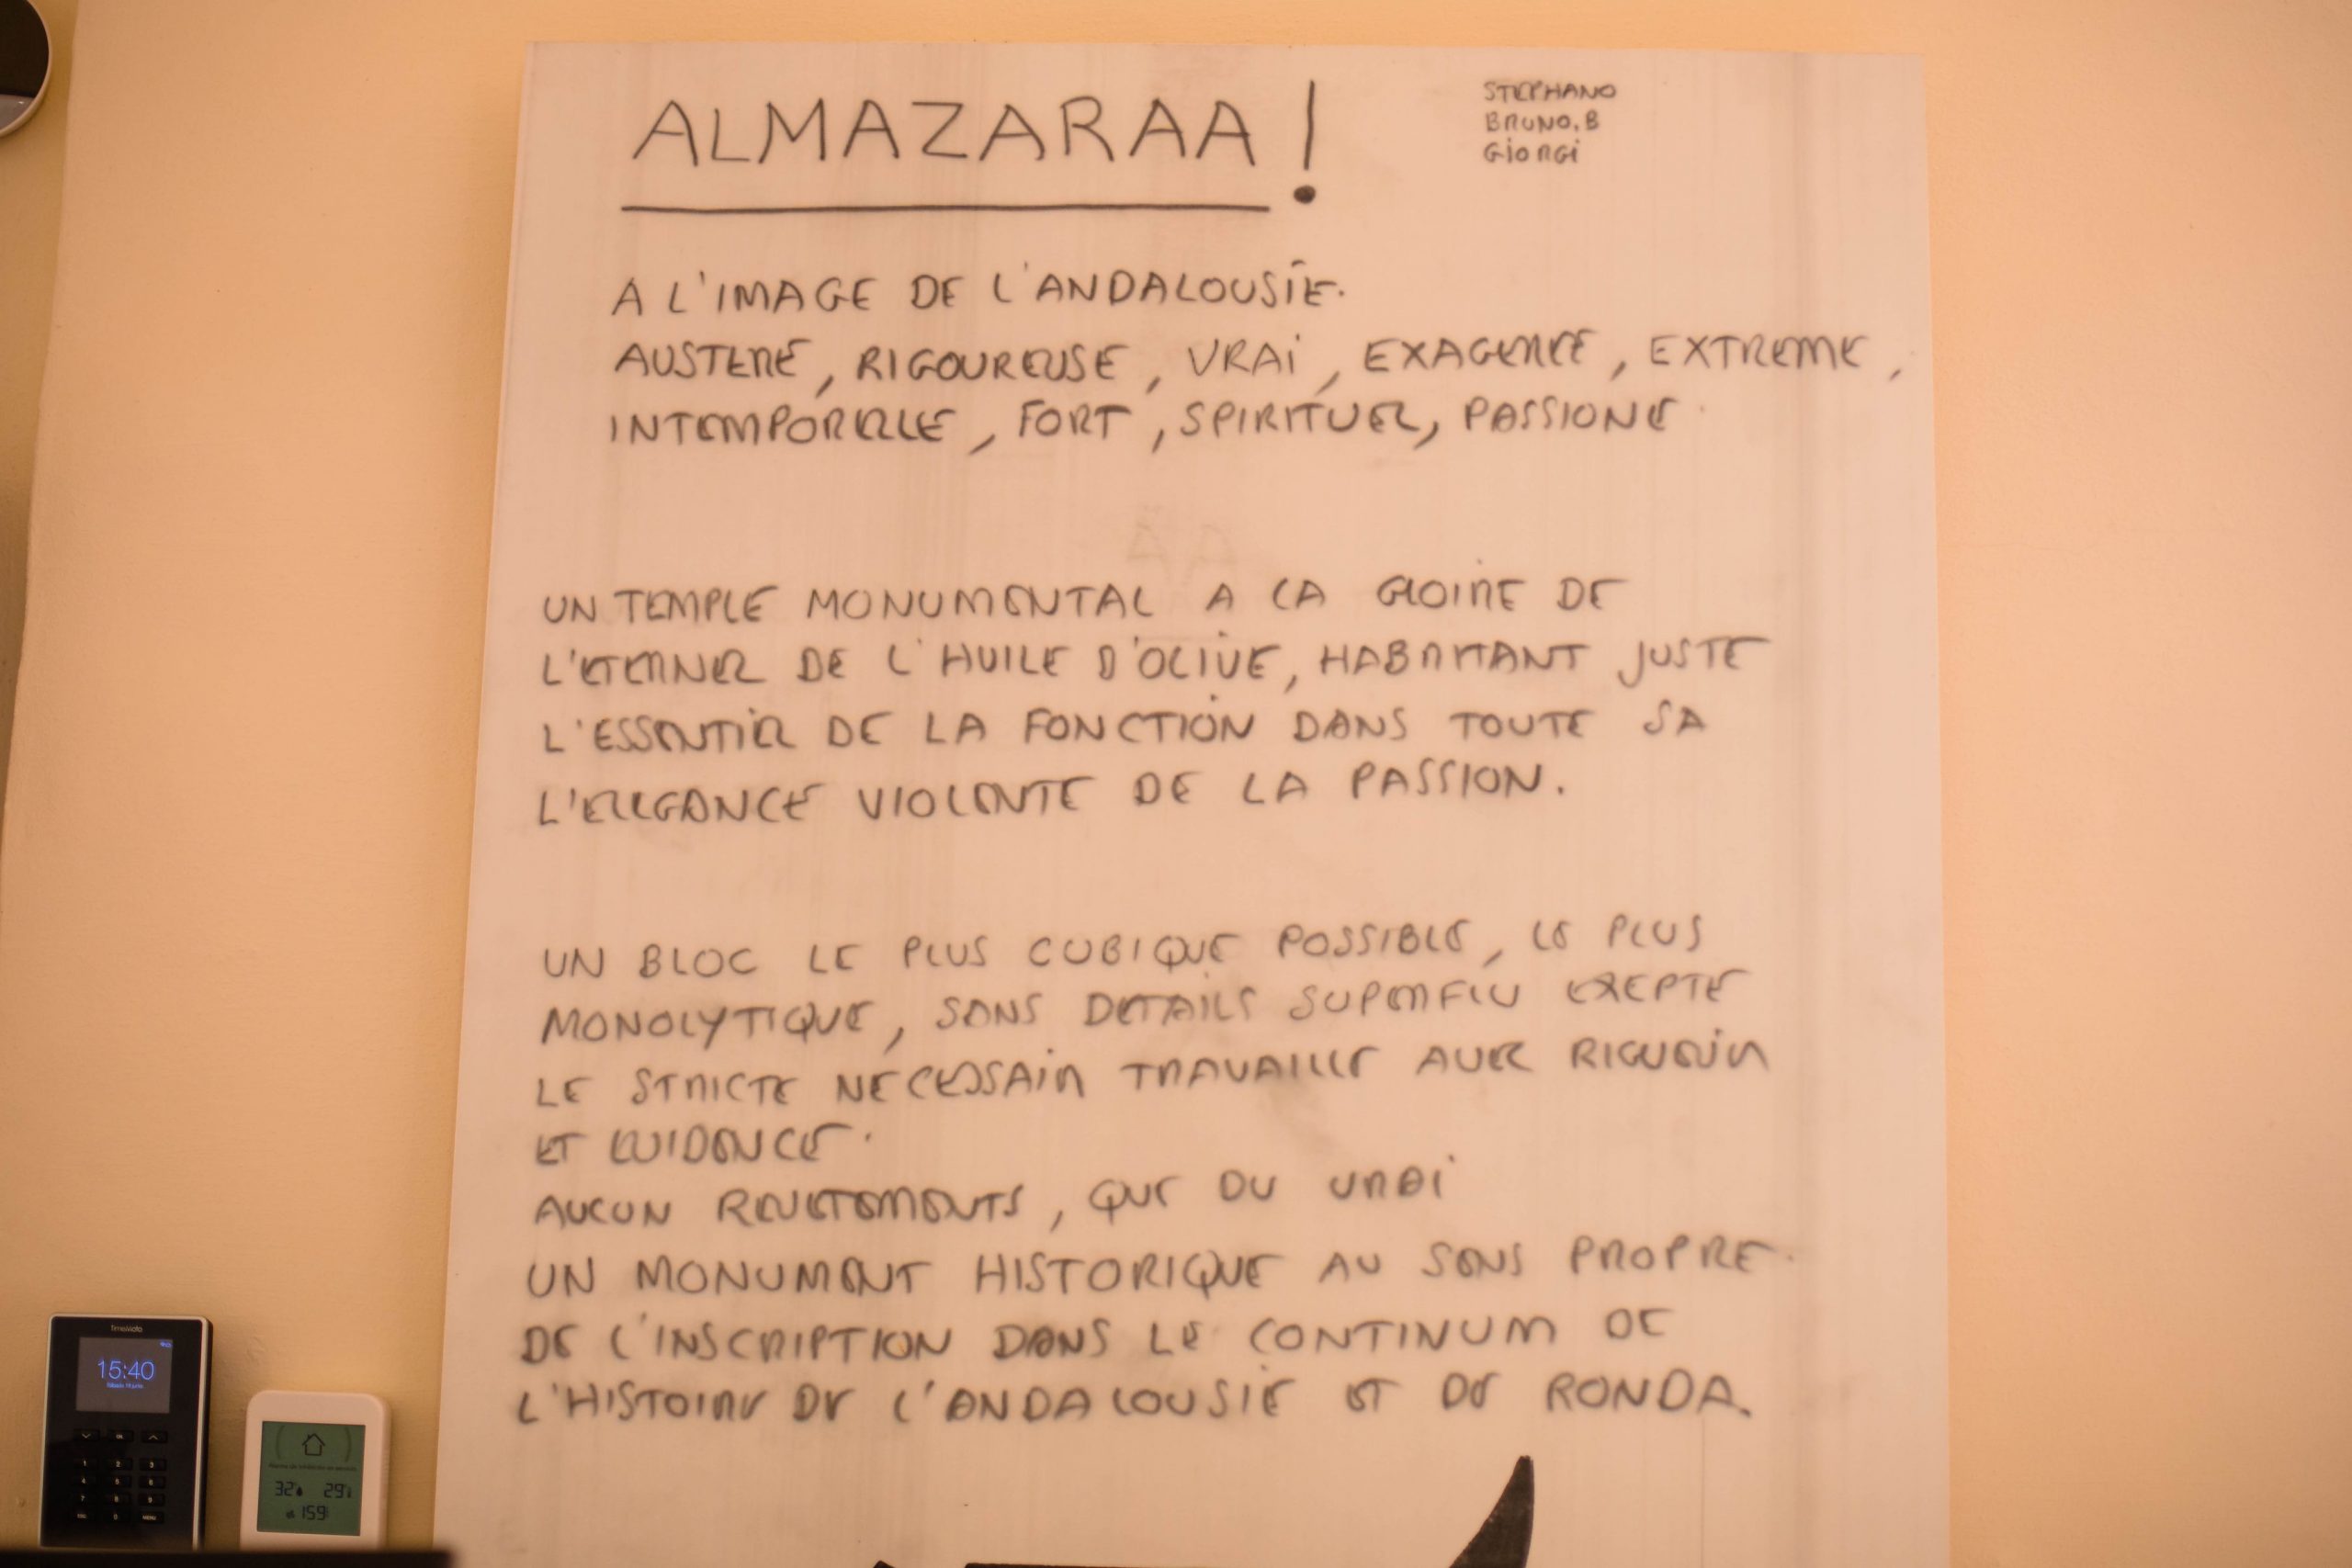 ALMAZARAA!
STEPHANO
BRUNO.B
GIORGI
A L'IMAGE DE L'ANDALOUSIE.
AUSTERE, RIGOUREUSE, VRAI, EXAGEREE, EXTREME,
INTEMPORELLE, FORT, SPIRITUEL, PASSIONE
UN TEMPLE MONUMENTAL A LA GLOIRE DE
L'ETERNEL DE L'HUILE D'OLIVE, HABRITANT JUSTE
L'ESSENTIEL DE LA FONCTION DANS TOUTE SA
L'ELEGANCE VIOLENTE DE LA PASSION.
UN BLOC LE PLUS CUBIQUE POSSIBLE, LE PLUS
MONOLYTIQUE, SANS DETAILS SUPERFLU EXEPTE
LE STRICTE NECESSAIR TRAVAILLE AVEC RIGUEUR
ET EVIDENCE.
AUCUN REVETEMENTS, QUE DU VRAI
UN MONUMENT HISTORIQUE AU SENS PROPRE.
DE L'INSCRIPTION DANS LE CONTINUM DE
L'HISTOIRE DE L'ANDALOUSIE ET DE RONDA.
timemoto
15:40
1
2
3
4
5
6
7
8
9
0
MENU
32
29
159